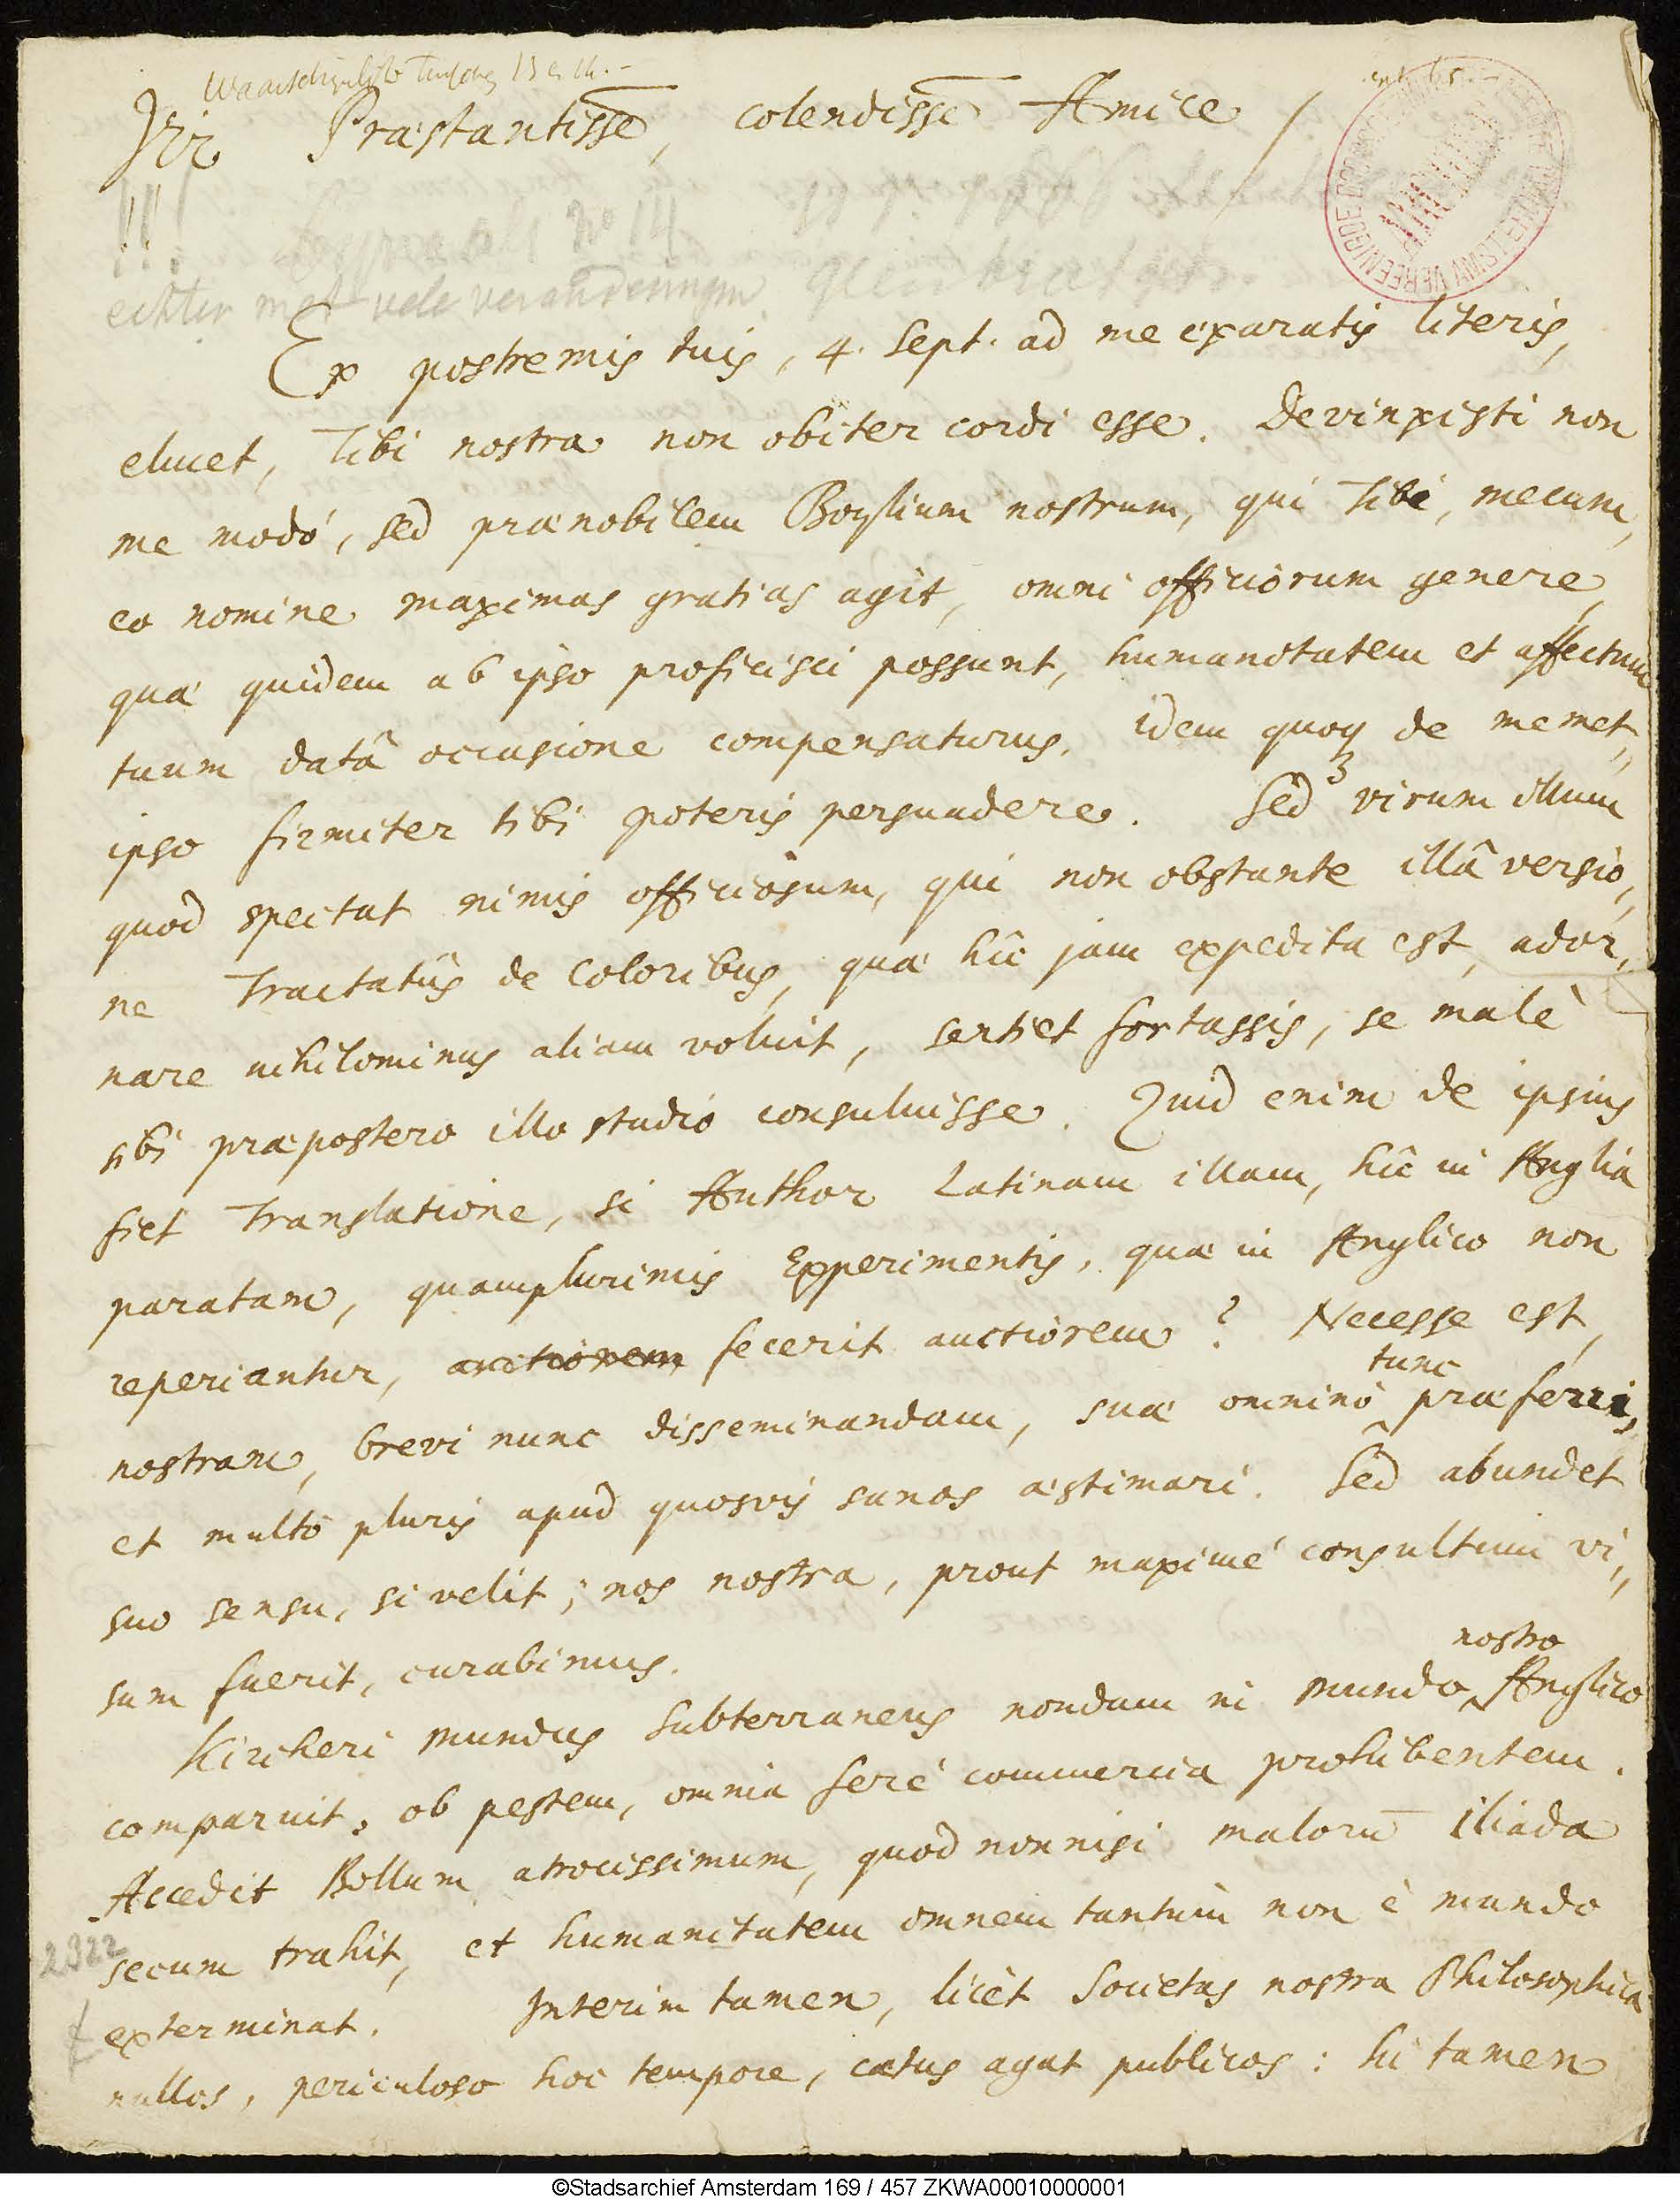 Waarschijnlijk tusschen 13 en 14.-
Vir Præstantissē, colendissē Amice
N° 14
echter met vele veranderingen
Ex postremis tuis, 4. Sept. ad me exaratis literis,
elucet, Tibi nostra non obiter cordi esse. Devinxisti non
me modó, sed prænobilem Boylium nostrum, qui Tibi, mecum,
eo nomine maximas gratias agit, omni officiorum genere,
quæ quidem ab ipso proficisci possunt, humanitatem et affectum
tuum datâ occasione compensaturus. idem quoq de memet,,
ipso firmiter tibi poteris persuadere. Sed virum illum
quod spectat nimis officiosum, qui non obstante illâ versio,,
ne Tractatûs de Coloribus, quæ hîc jam expedita est, ador,,
nare nihilominus aliam voluit, sentiet fortassis, se malè
sibi præpostero illo studio consuluisse. Quid enim de ipsius
fiet Translatione, si Author Latinam illam, hîc in Anglia
paratam, quamplurimis Experimentis, quæ in Anglico non
reperiantur, auctiorem fecerit auctiorem? Necesse est,
tunc
nostram, brevi nunc disseminandam, suæ omninò præferri,
et multò pluris apud quosvis sanos æstimari. Sed abundet
suo sensu, si velit; nos nostra, prout maximé consultum vi,,
sum fuerit, curabimus.
nostro
Kircheri Mundus Subterraneus nondum in Mundo Anglico
comparuit, ob pestem, omnia feré commercia prohibentem.
Accedit Bellum atrocissimum, quod nonnisi malorū Iliada
secum trahit, et humanitatem omnem tantùm non è mundo
2322
exterminat. Interim tamen, licèt Societas nostra Philosophica
nullos, periculoso hoc tempore, cœtus agat publicos: hi tamen
©Stadsarchief Amsterdam 169 / 457 ZKWA00010000001